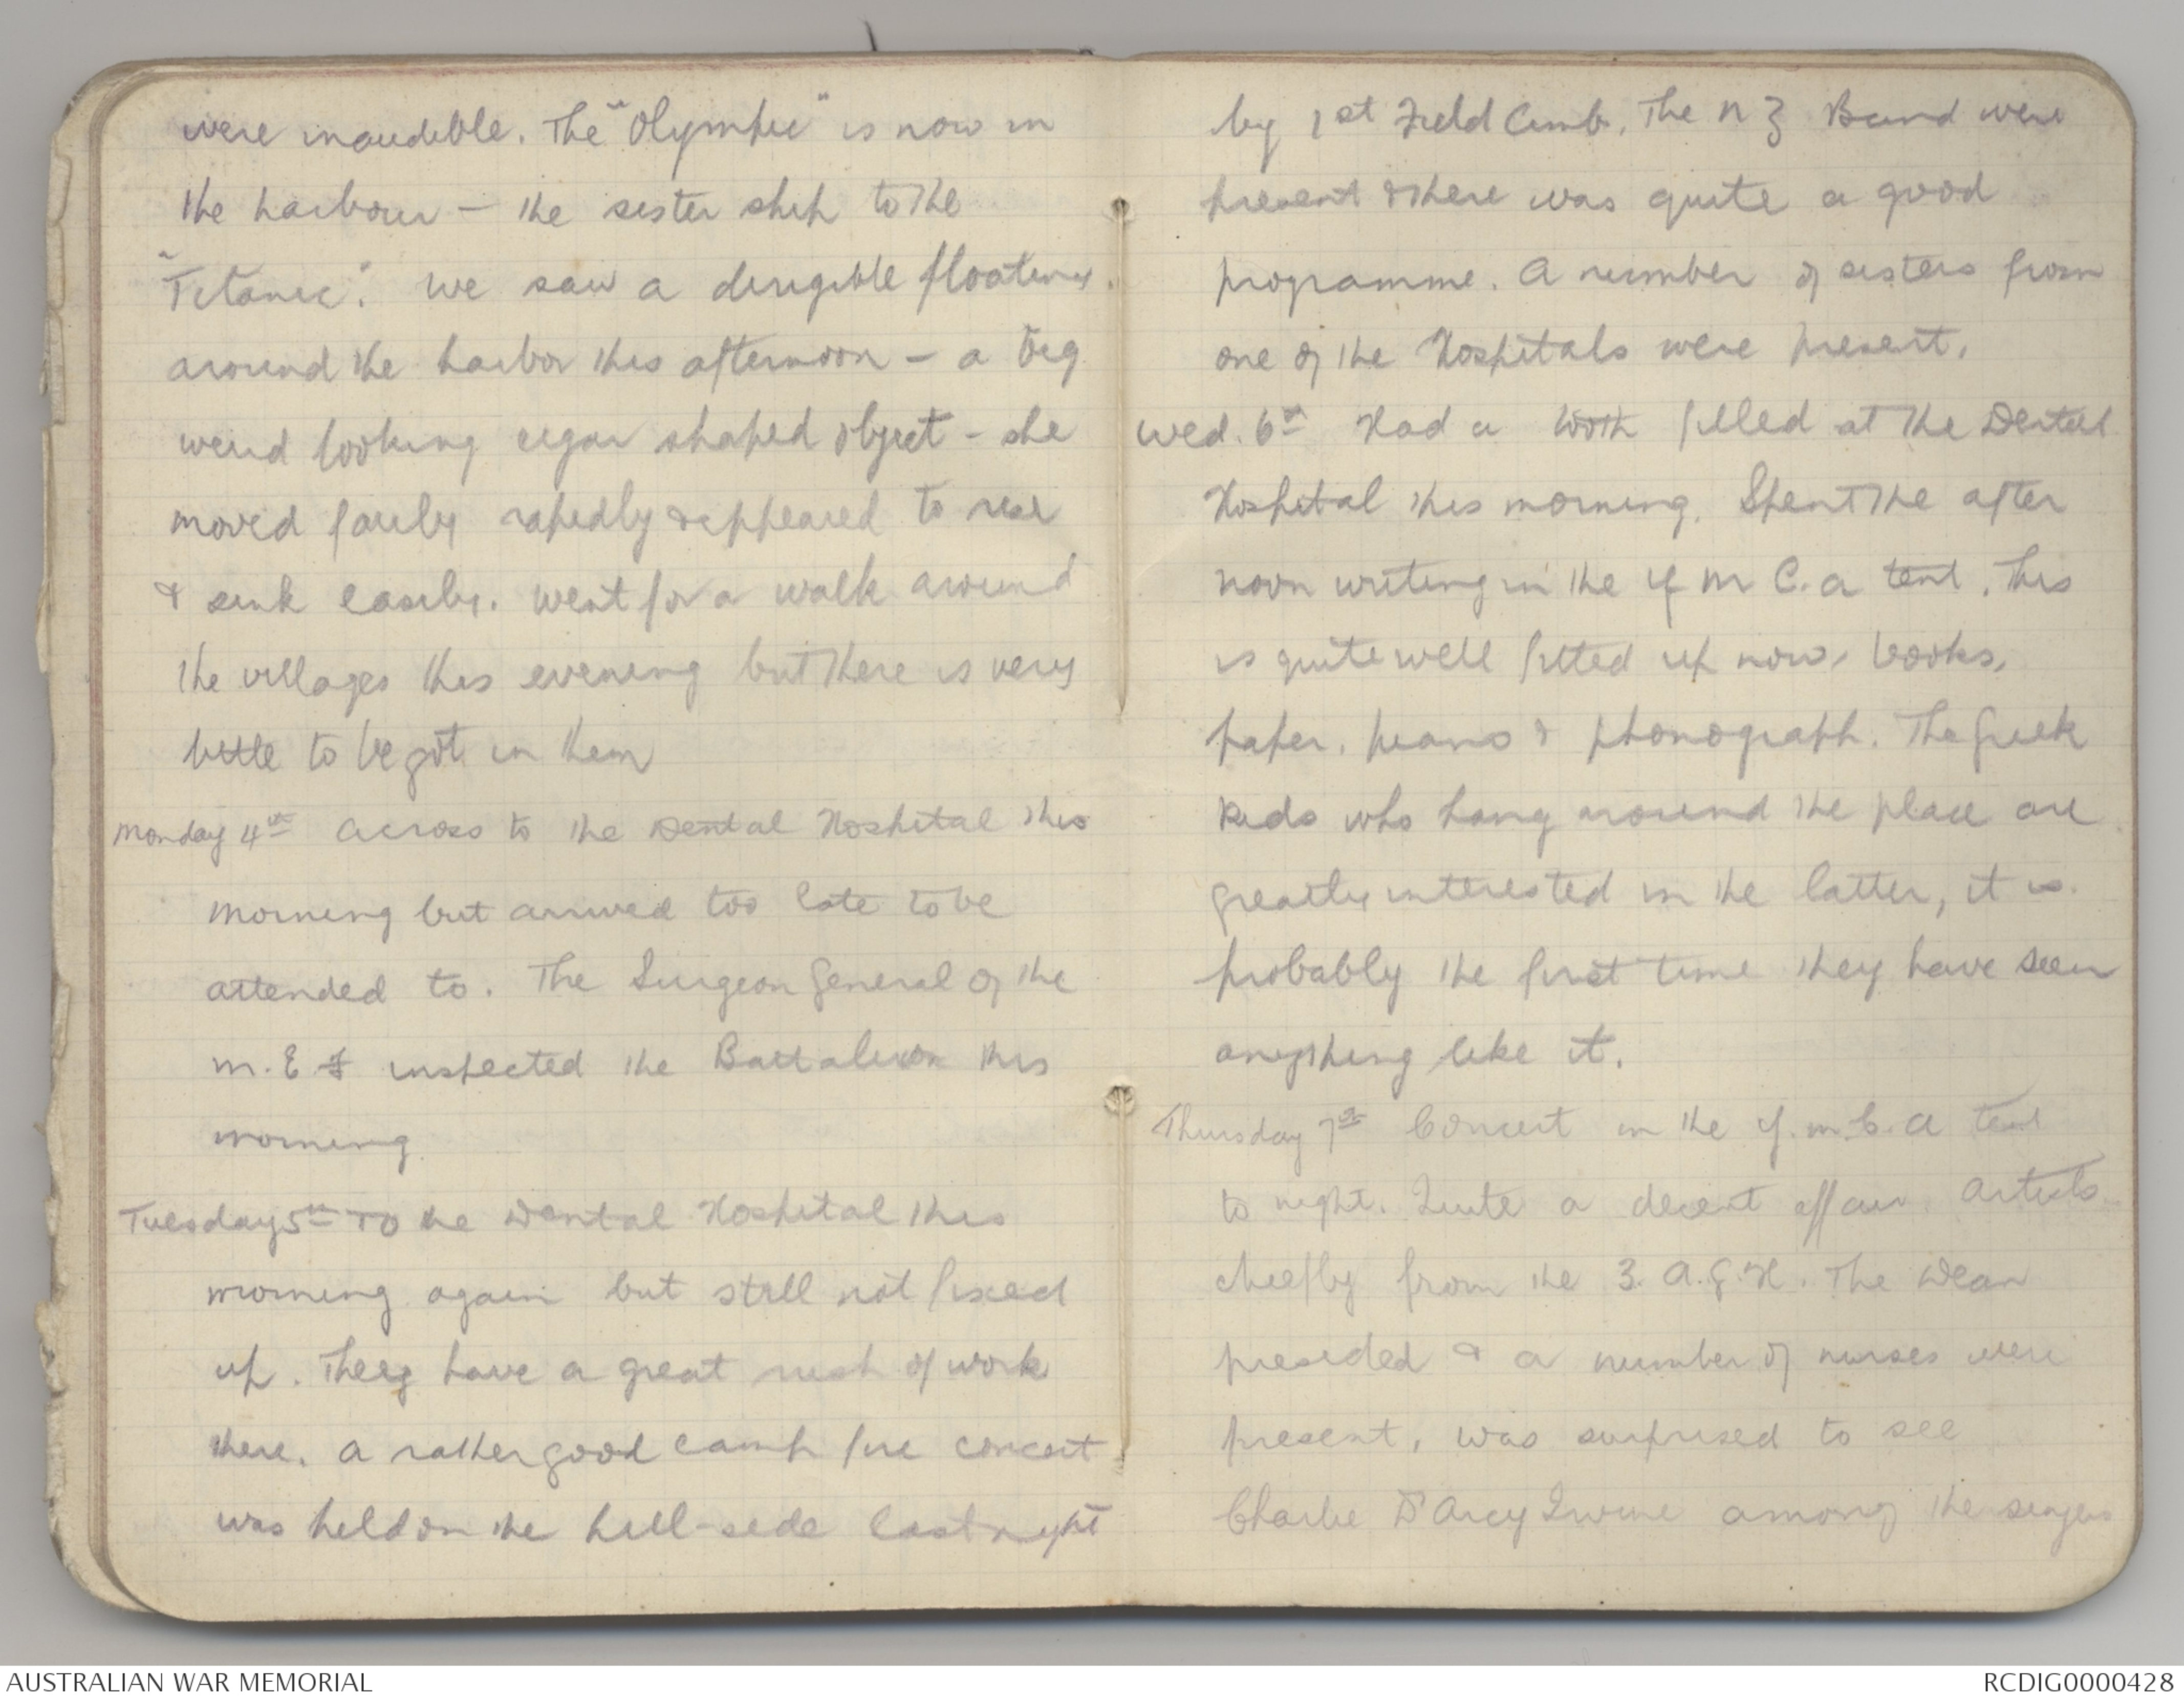 were inaudible. The "Olympic" is now in
the harbour - the sister ship to the
"Titanic". We saw a dirigible floating
around the harbor this afternoon - a big
weird looking cigar shaped object - she
moved fairly rapidly & appeared to rise
& sink easily. Went for a walk around
the villages this evening but there is very
little to be got in them
Monday 4th Across to the Dental Hospital this
morning but arrived too late to be
attended to. The Surgeon General of the
M.E.F inspected the Battalion this
morning
Tuesday 5th To the Dental Hospital this
morning again but still not fixed
up. They have a great rush of work
there. A rather good camp fire concert
was held on the hill-side last night
by 1st Field Amb. The N Z Band were
present & there was quite a good
programme. A number of sisters from
one of the Hospitals were present.
Wed. 6th Had a tooth filled at the Dental
Hospital this morning. Spent the after
noon writing in the Y M C. A tent. This
is quite well fitted up now, books,
paper, piano & phonograph. The Greek
kids who hang around the place are
greatly interested in the latter, it is
probably the first time they have seen
anything like it.
Thursday 7th Concert in the Y.M.C.A tent
to night. Quite a decent affair. Artists
chiefly from the 3. A.G.H. The Dean
presided & a number of nurses were
present, was surprised to see
Charlie D'Arcy Irvine among the singers
AUSTRALIAN WAR MEMORIAL
RCDIG0000428